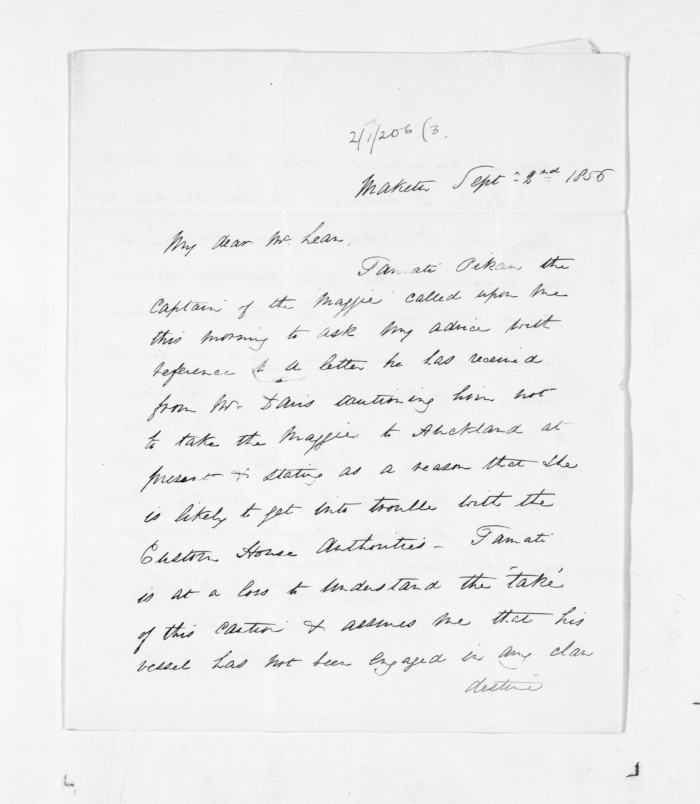 2/1/206 (3.
Maketu Sept: 2nd 1856
My dear Mr. Lean,
Tamati Pikau the
Captain of the Maggie called upon me
this morning to ask my advice with
reference to a letter he has received
from Mr. Davis cautioning him not
to take the Maggie to Auckland at
present & stating as a reason that she
is likely to get into trouble with the
Custom House Authorities - Tamati
is at a loss to understand the "take"
of this caution & assures me that his
vessel has not been engaged in any clan
destine